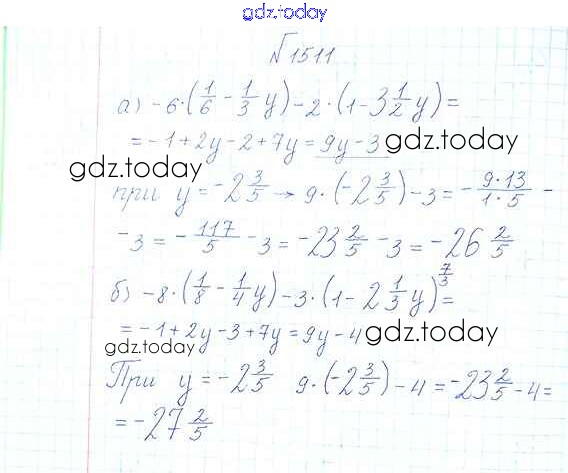 gdz.today
№1511
а) -6·(1/6 - 1/3 y) - 2·(1 - 3 1/2 y) =
= -1 + 2y - 2 + 7y = 9y - 3 gdz.today
gdz.today
при y = -2 3/5 → 9·(-2 3/5) - 3 = - 9·13/1·5 -
-3 = - 117/5 - 3 = -23 2/5 - 3 = -26 2/5
б) -8·(1/8 - 1/4 y) - 3·(1 - 2 1/3 y) 7/3 =
= -1 + 2y - 3 + 7y = 9y - 4 gdz.today
gdz.today
При y = -2 3/5 9·(-2 3/5) - 4 = -23 2/5 - 4 =
= -27 2/5